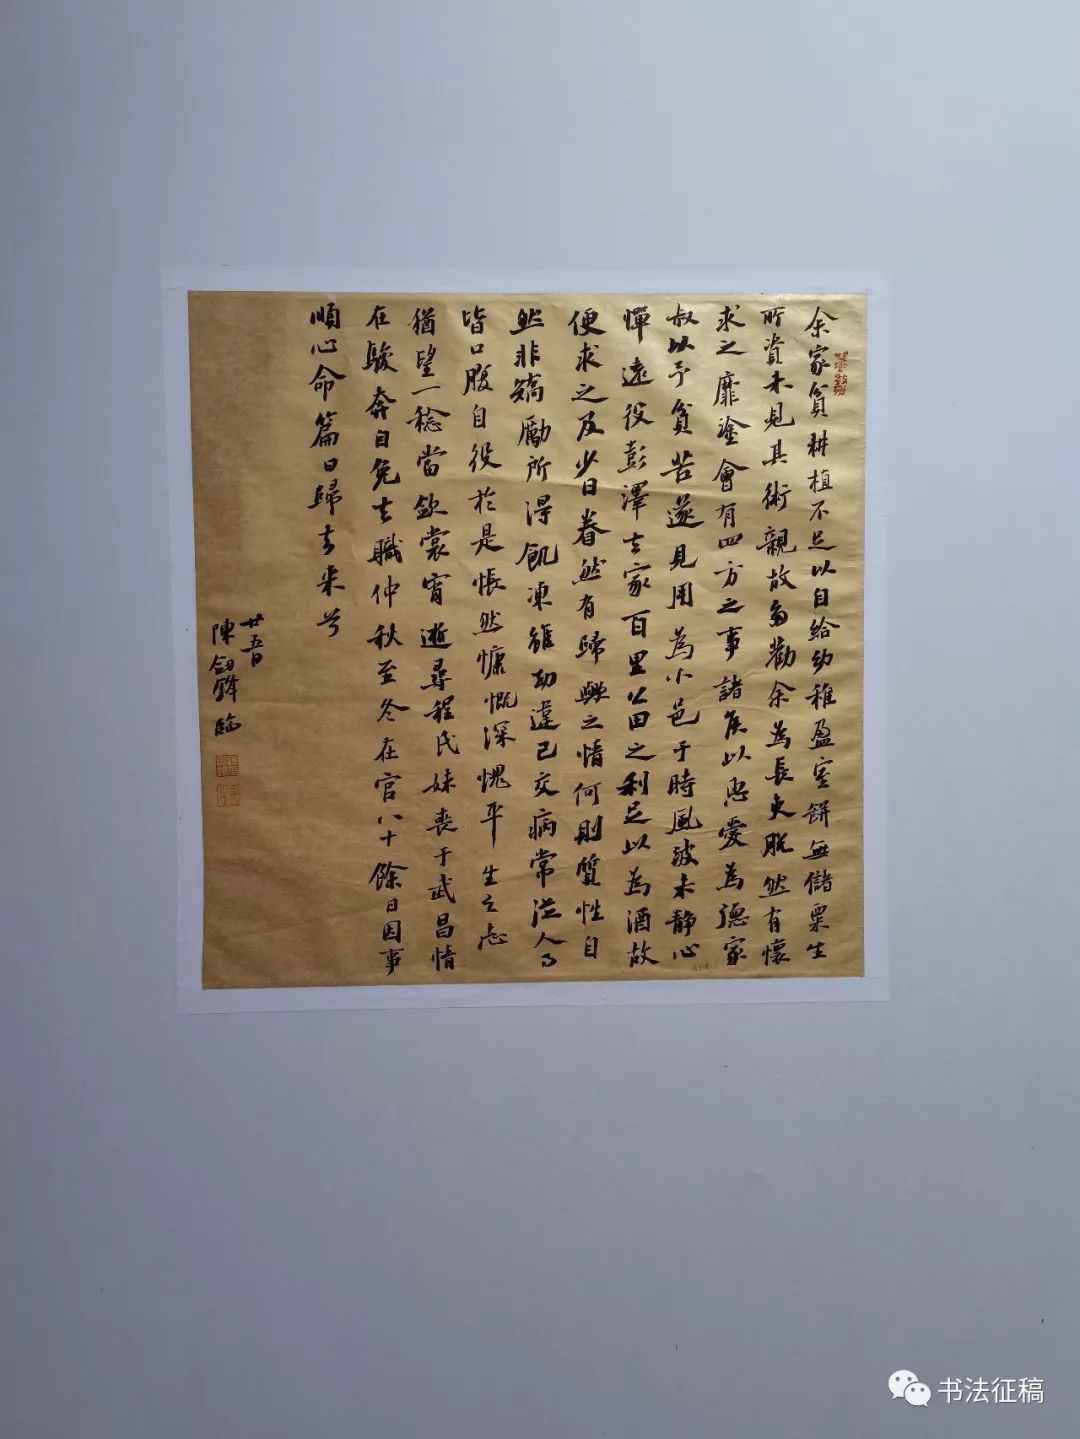 余家貧耕植不足以自給幼稚盈室缾無儲粟生
所資未見其術親故多勸余為長吏脫然有懷
求之靡塗會有四方之事諸侯以惠愛為德家
叔以予貧苦遂見用為小邑于時風波未静心
憚遠役彭澤去家百里公田之利足以為酒故
便求之及少日眷然有歸歟之情何則質性自
然非矯勵所得飢凍雖切違己交病常從人事
皆口腹自役於是悵然慷慨深愧平生之志
猶望一稔當斂裳宵逝尋程氏妹喪于武昌情
在駿奔自免去職仲秋至冬在官八十餘日因事
順心命篇曰歸去来兮
廿五日
陳劍鋒臨
书法征稿